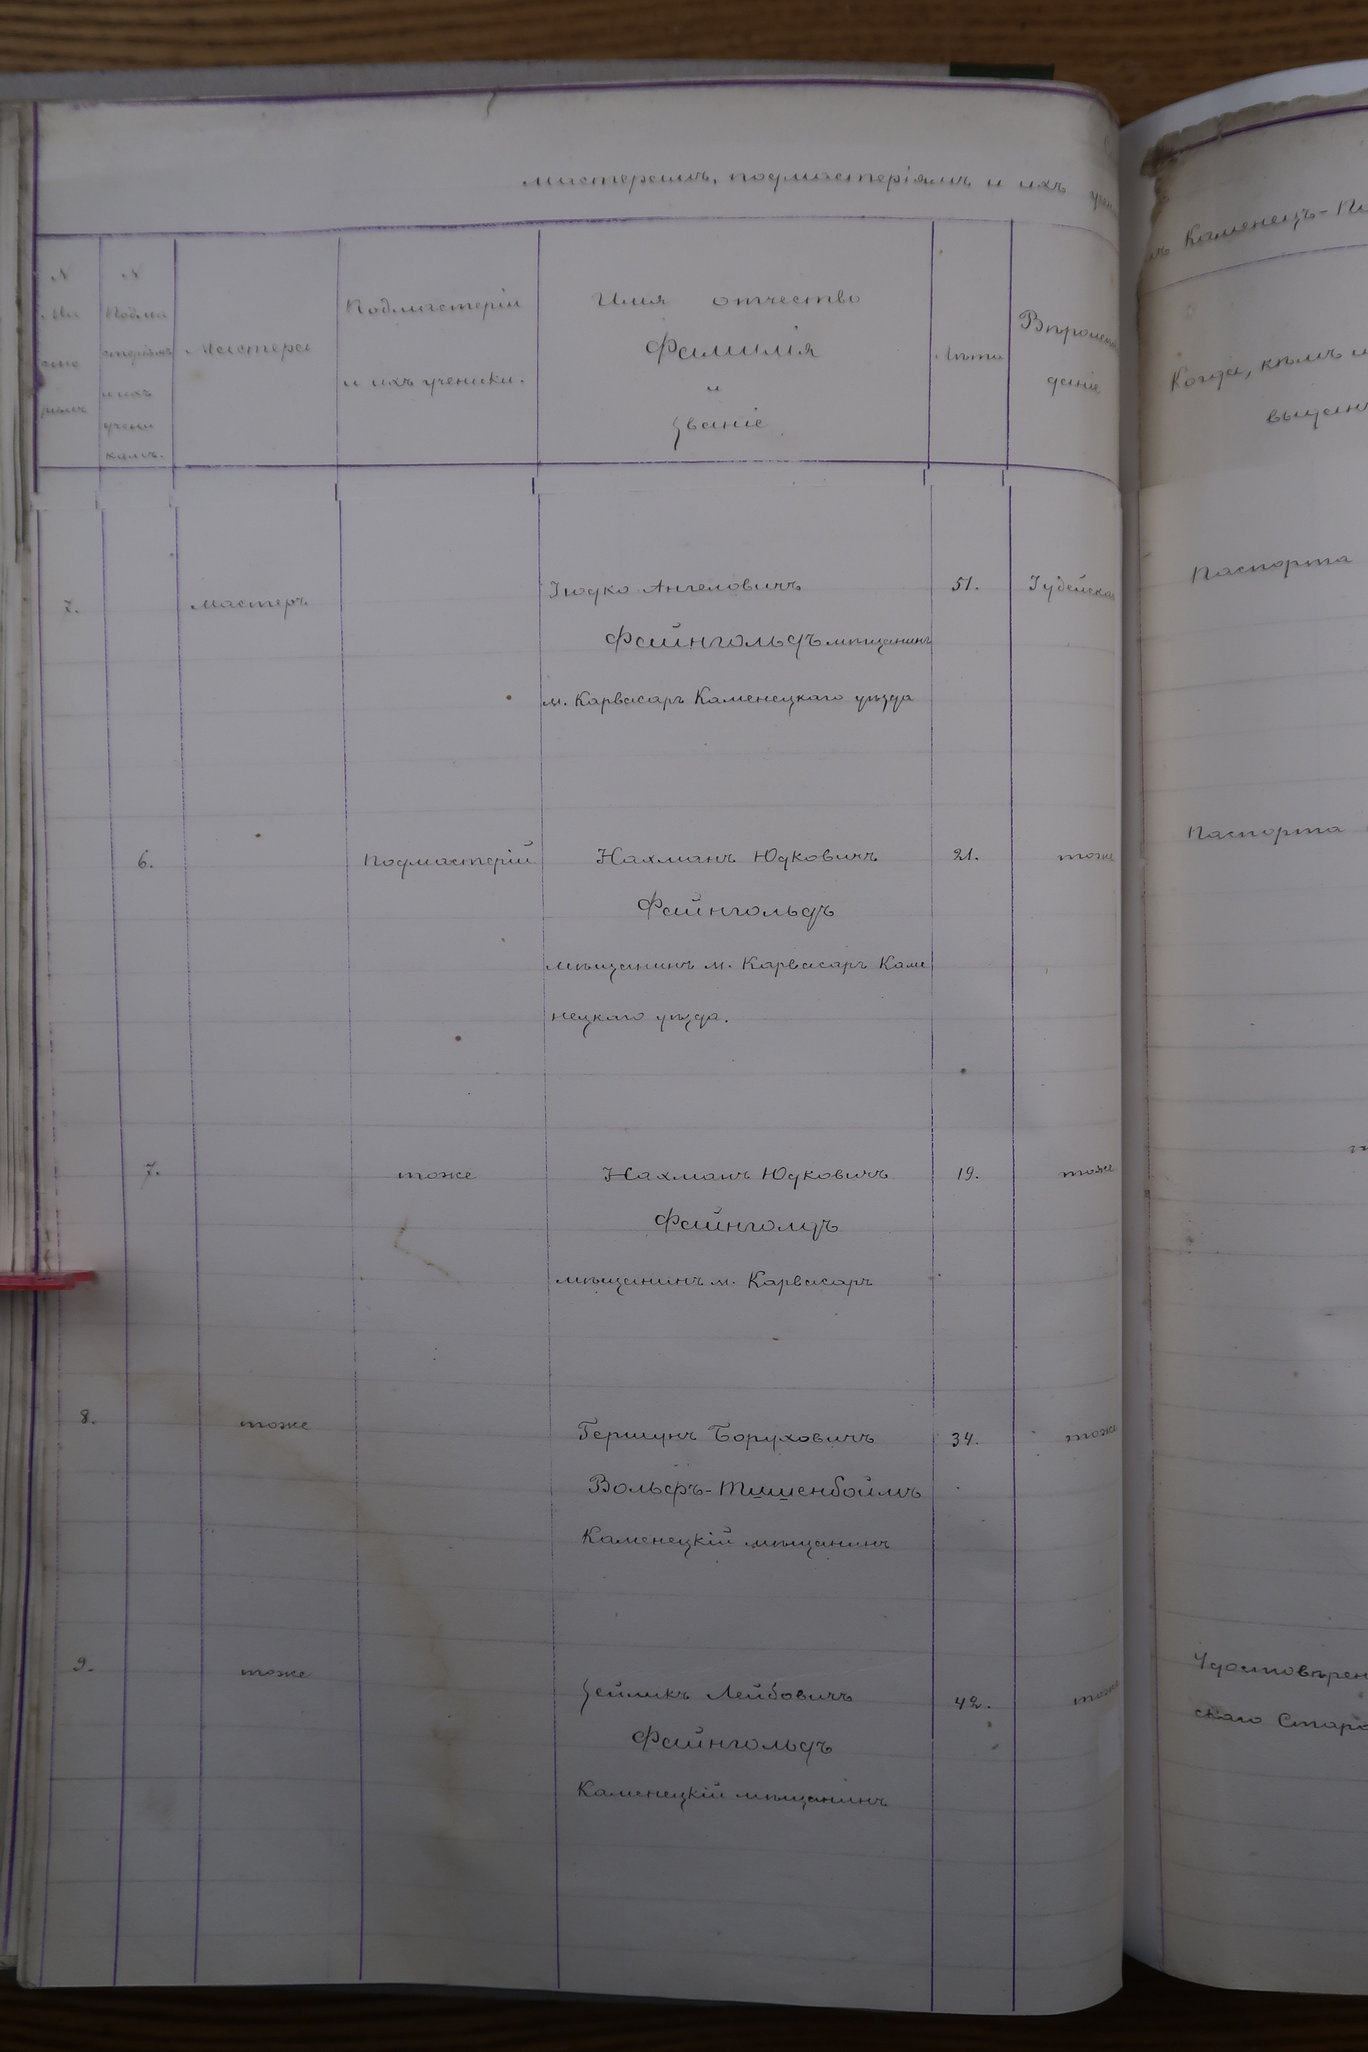 мастерамъ, подмастеріямъ и ихъ
N
Ма
сте
рамъ
N
Подма
стеріямъ
и ихъ
учени
камъ.
Мастера
Подмастеріи
и ихъ ученики.
Имя отчество
Фамилія
и
Званіе
Лѣта
Вѣроиспо
даніе
7.
мастеръ
Іюдко Ангеловичъ
51.
Іудейская
Файнгольдъ мѣщанинъ
м. Карвасаръ Каменецкаго уѣзда
6.
Подмастерій
Нахманъ Юдковичъ
21.
тоже
Файнгольдъ
мѣщанинъ м. Карвасаръ Каме
нецкаго уѣзда.
7.
тоже
Нахманъ Юдковичъ
19.
тоже
Файнголдъ
мѣщанинъ м. Карвасаръ
8.
тоже
Гершунъ Боруховичъ
34.
тоже
Вольфъ-Тишенбоймъ
Каменецкій мѣщанинъ
9.
тоже
Зейликъ Лейбовичъ
42.
тоже
Файнгольдъ
Каменецкій мѣщанинъ
Каменецъ-По
Когда, кѣмъ и
выдан
Паспорта
Паспорта
Удостовѣрен
скаго Старо